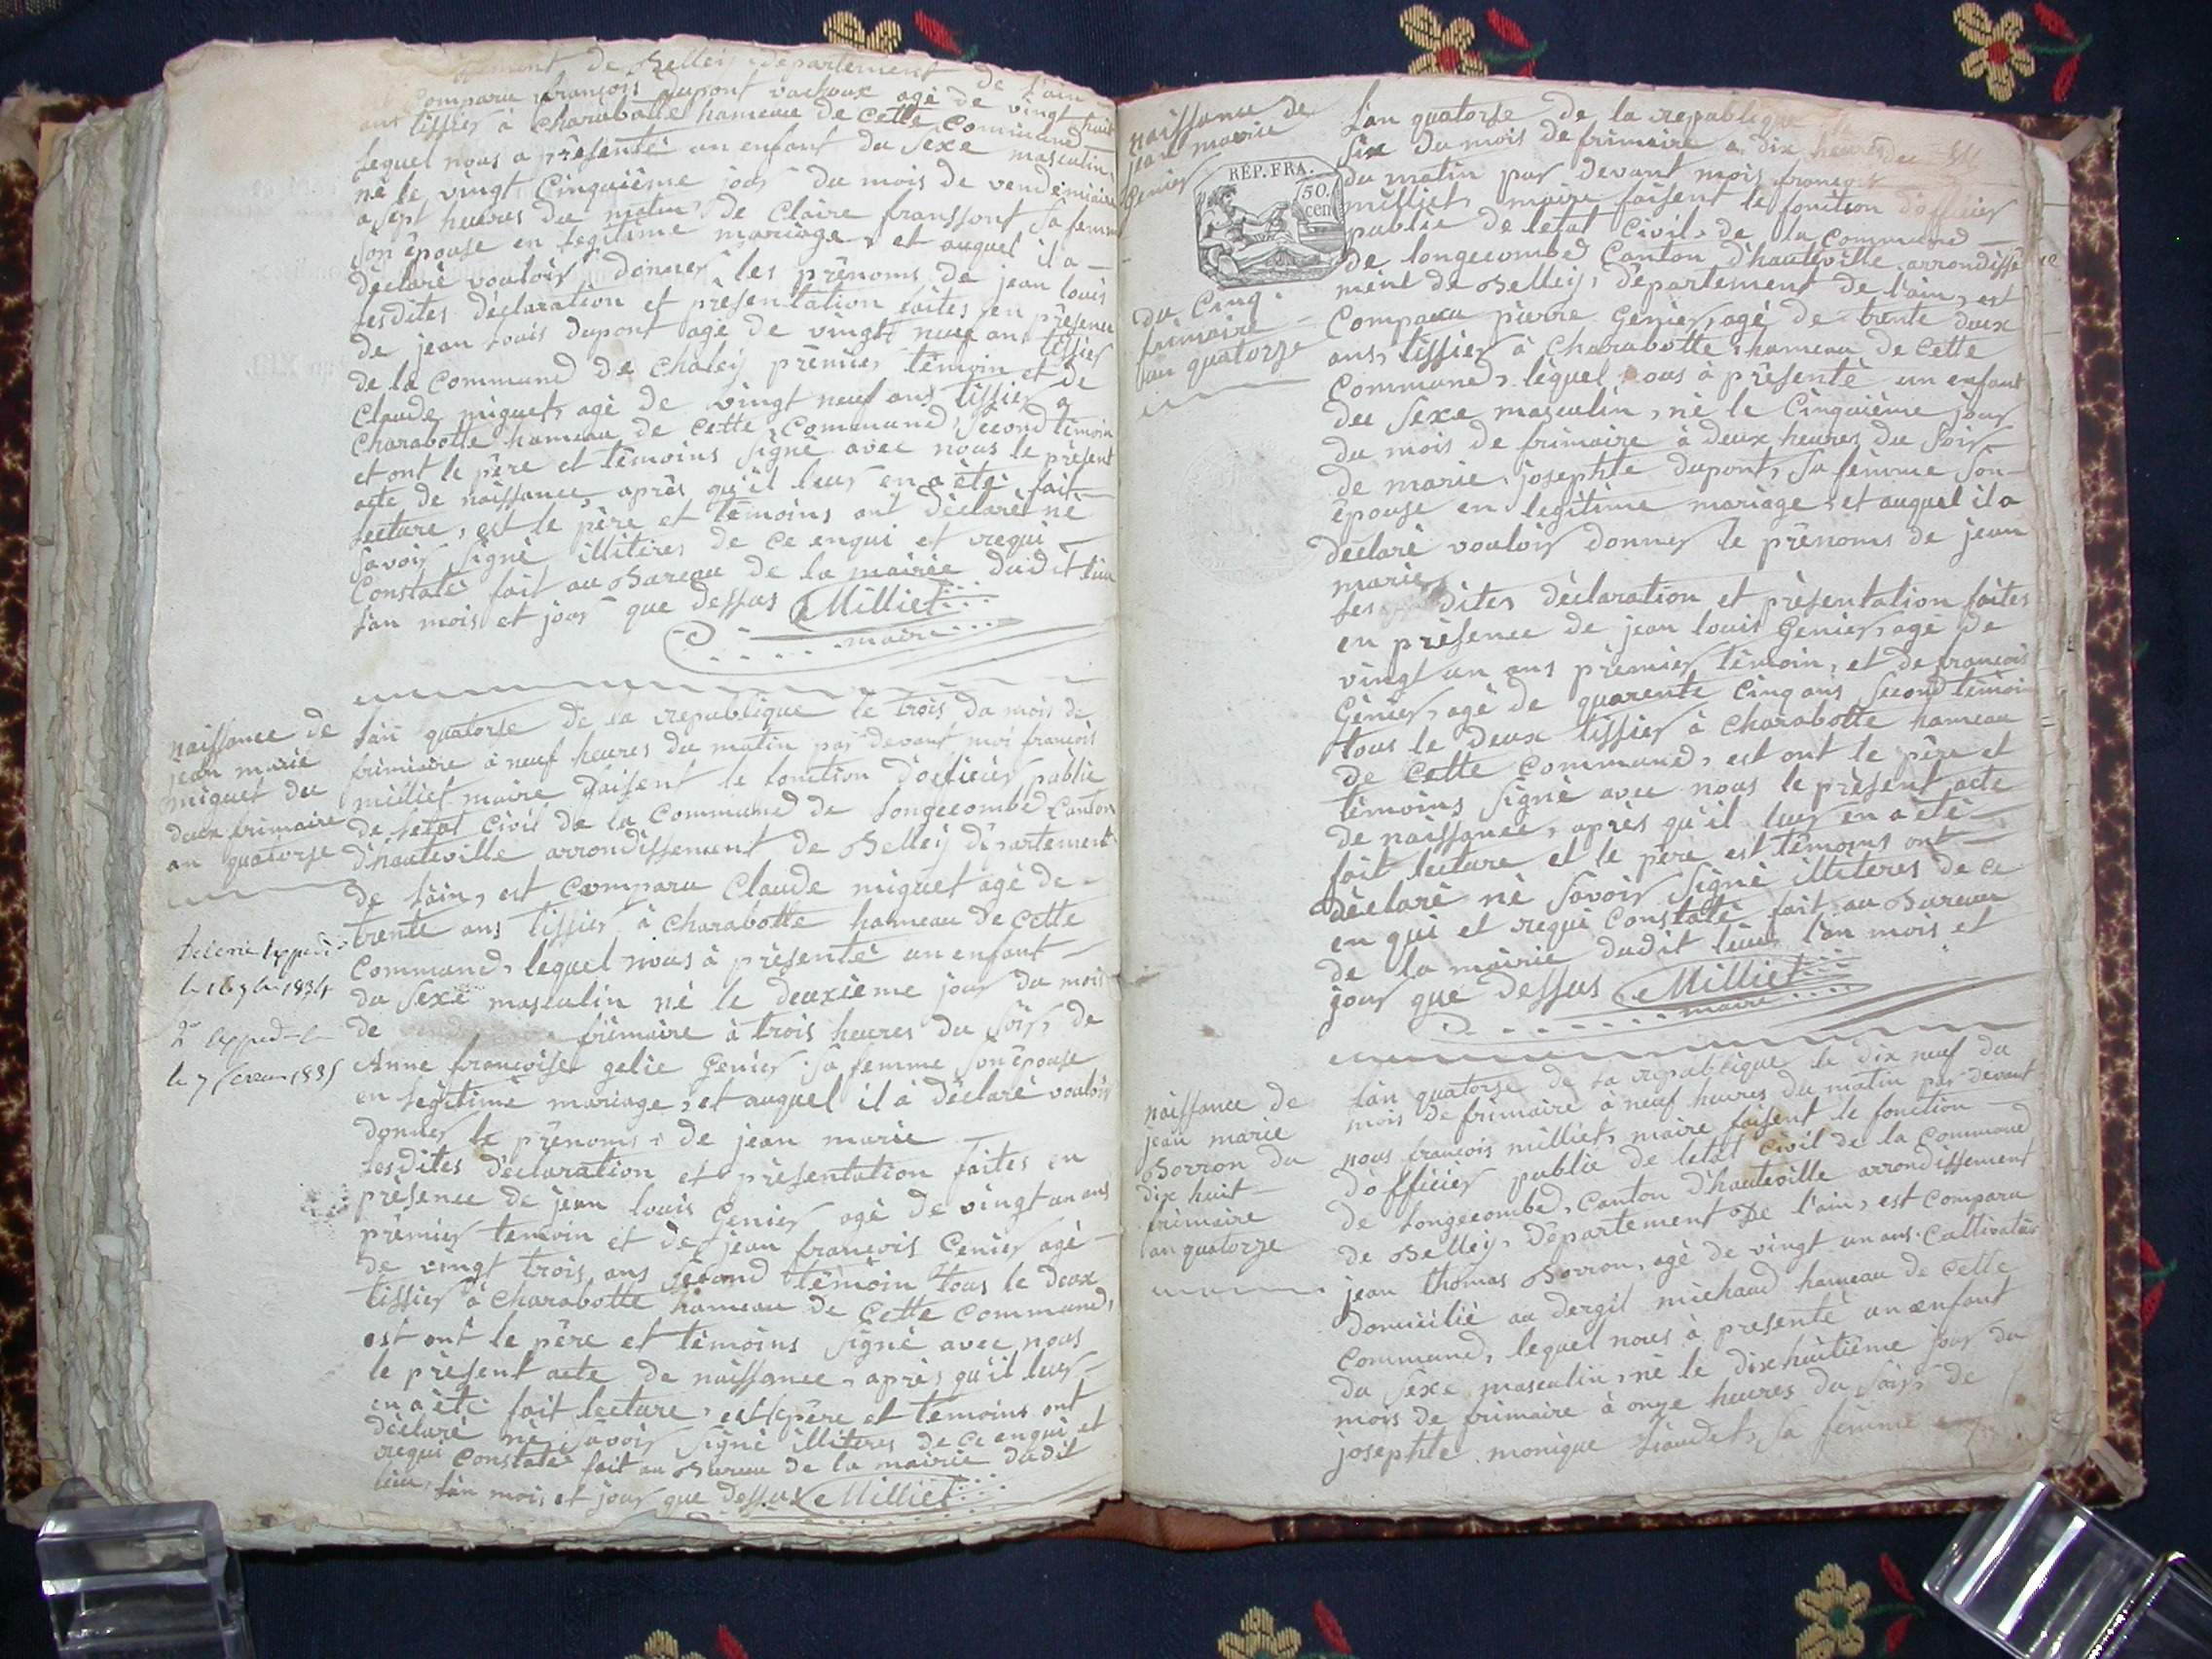 de Belley département de l'ain
comparu françois dupont vachoux agé de vingt huit
ans tissier à charabotte hameau de cette commune
lequel nous a présenté un enfant du sexe masculin,
né le vingt cinquième jour du mois de vendémiaire
a sept heures du matin de claire franssont sa femme
son épouse en légitime mariage, et auquel il a
déclaré vouloir donner les prénoms de jean louis
lesdites déclaration et présentation faites en présence
de jean louis dupont agé de vingt neuf ans tissier
de la commune de chaley prémier témoin et de
claude miguet, agé de vingt neuf ans tissier a
charabotte hameau de cette commune, second témoin
et ont le père et témoins signé avec nous le présent
acte de naissance, après qu'il leur en a été fait
lecture, est le père et témoins ont déclaré né
savoir signé illitéres de ce enqui et requi
constaté fait au Bureau de la mairie dudit lieu
l'an mois et jour que dessus Milliet
maire
naissance de
jean marie
miguet du
deux frimaire
an quatorse
délivré expedit
le 16 7bre 1834
2e expedit
le 7 fevrier 1835
l'an quatorse de la republique le trois du mois de
frimaire à neuf heures du matin par devant moi françois
milliet maire faisent le fonction d'officier public
de letat civil de la commune de longecombe canton
d'hauteville arrondissement de Belley département
de l'ain, est comparu claude miguet agé de
trente ans tissier à charabotte hameau de cette
commune, lequel nous à présenté un enfant
du sexe masculin né le deuxième jour du mois
de frimaire à trois heures du soir, de
Anne françoise gelie Genier sa femme son épouse
en légitime mariage, et auquel il à déclaré vouloir
donner le prénoms, de jean marie
lesdites déclaration et présentation faites en
présence de jean louis Genier agé de vingt un ans
prémier temoin et de jean françois Genier agé
de vingt trois ans second témoin tous le deux
tissier à charabotte hameau de cette commune,
est ont le père et témoins signé avec nous
le présent acte de naissance, après qu'il leur
en a été fait lecture, est le père et temoins ont
déclaré né savoir signé illiteres de ce enqui et
requi constaté fait au Bureau de la mairie dudit
lieu, l'an mois et jour que dessus Milliet
naissance de
jean marie
Genier
RÉP. FRA.
50.
cen
du cinq
frimaire
an quatorze
l'an quatorse de la republique le
six du mois de frimaire a dix heures
du matin par devant mois françois
milliet, maire faisent le fonction d'officier
public de letat civil, de la commune
de longecombe canton d'hauteville arrondisse
ment de Belley, département de l'ain, est
comparu pierre Genier, agé de trente deux
ans, tissier à charabotte, hameau de cette
commune, léquel nous à présenté un enfant
du sexe masculin, né le cinquième jour
du mois de frimaire à deux heures du soir
de marie josephte dupont, sa femme son
épouse en legitime mariage, et auquel il a
déclaré vouloir donner le prénoms de jean
marie
les dites déclaration et présentation faites
en présence de jean louis Genier, agé de
vingt un ans prémier témoin, et de françois
Génier, agé de quarente cinq ans second témoin
tous le deux tissier à charabotte hameau
de cette commune, est ont le père et
témoins signé avec nous le présent acte
de naissance, après qu'il leur en a été
fait lecture et le père est témoins ont
déclaré né savoir signé illiteres de ce
en qui et requi constaté fait au Bureau
de la mairie dudit lieu, l'an mois et
jour que dessus Milliet
maire
naissance de
jean marie
Borron du
dix huit
frimaire
an quatorze
l'an quatorse de la republique le dix neuf du
mois de frimaire à neuf heures du matin par devant
nous françois milliet, maire faisent le fonction
d'officier public de letat civil de la commune
de longecombe, canton d'hauteville arrondissement
de Belley, département de l'ain, est comparu
jean thomas Borron, agé de vingt un ans cultivateur
domicilié au dergit michaud hameau de cette
commune, lequel nous à présenté un enfant
du sexe masculin, né le dixhuitième jour du
mois de frimaire à onze heures du soir, de
josephte monique liaudet, sa femme